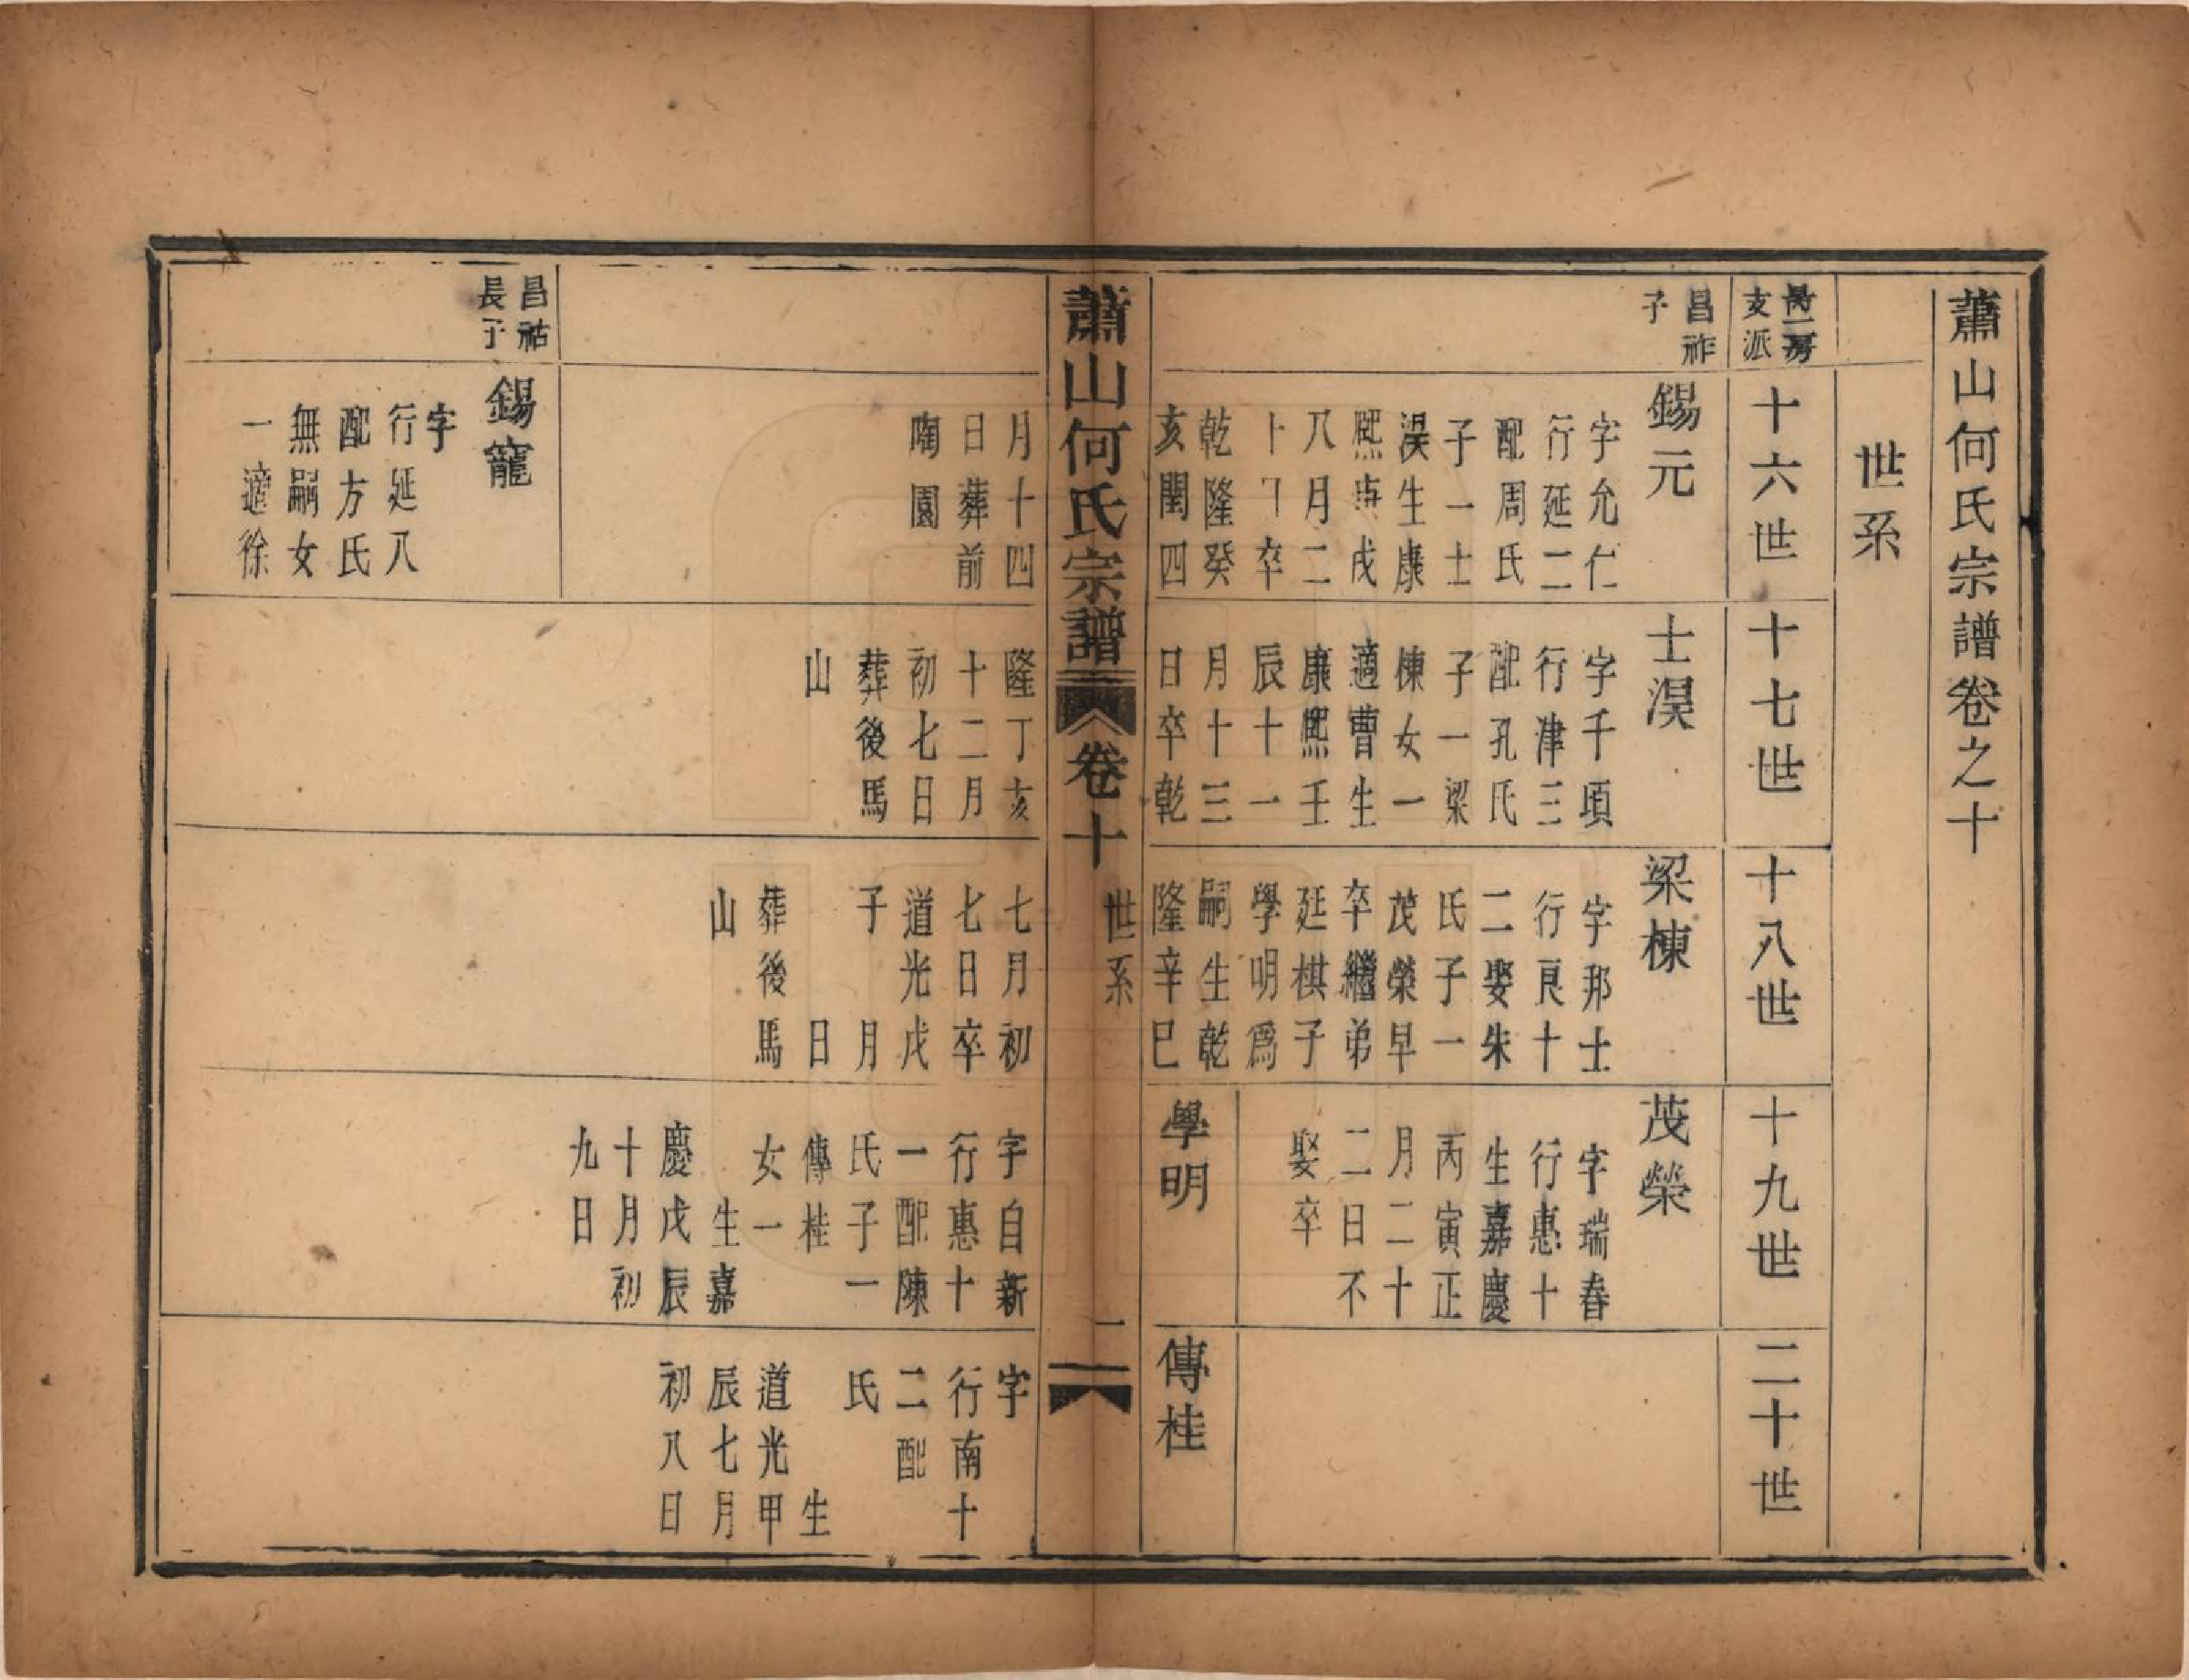 蕭山何氏宗譜卷之十
世系
支派
十六世
十七世
十八世
十九世
二十世
昌祚
子
錫元
字允仁
行延二
配周氏
子一士
淏生康
熙庚戌
八月二
十
卒
乾隆癸
亥閏四
月十四
日葬前
陶園
士淏
字千頃
行津三
配孔氏
子一梁
棟女一
適曹生
康熙壬
辰十一
月十三
日卒乾
隆丁亥
十二月
初七日
葬後馬
山
梁棟
字邦士
行良十
二娶朱
氏子一
茂榮早
卒繼弟
廷棋子
學明為
嗣生乾
隆辛巳
七月初
七日卒
道光戊
子 月
日
葬後馬
山
茂榮
字瑞春
行惠十
生嘉慶
丙寅正
月二十
二日不
娶卒
學明
字自新
行惠十
一配陳
氏子一
傳桂
女一
生嘉
慶戊辰
十月初
九日
傳桂
字
行南十
二配
氏
生
道光甲
辰七月
初八日
蕭山何氏宗譜 卷十 世系 二
昌祜
長子
錫寵
字
行延八
配方氏
無嗣女
一適徐